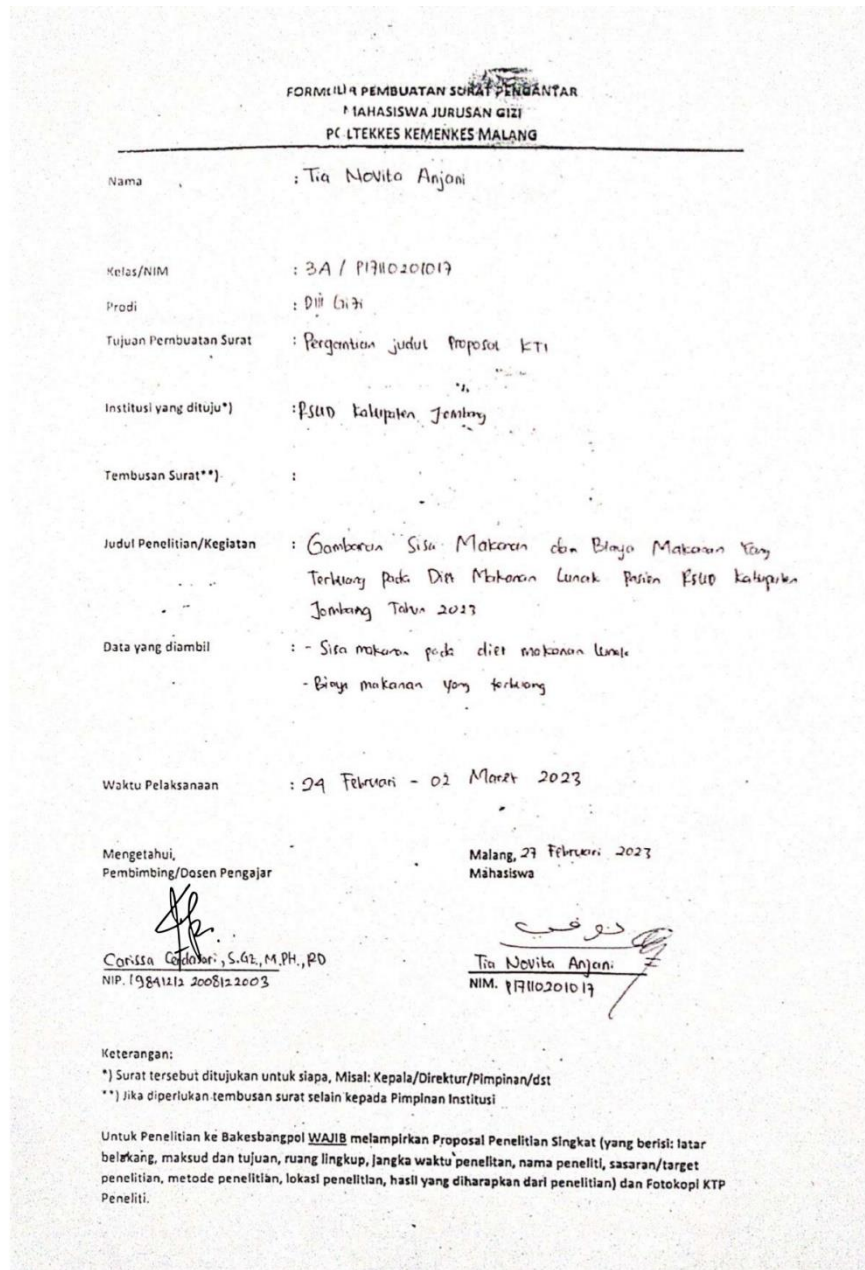 FORMULIR PEMBUATAN SURAT PENGANTAR
MAHASISWA JURUSAN GIZI
POLTEKKES KEMENKES MALANG
Nama : Tia Novita Anjani
Kelas/NIM : 3A / P17110201017
Prodi : DIII Gizi
Tujuan Pembuatan Surat : Pergantian judul Proposal KTI
Institusi yang dituju*) : RSUD Kabupaten Jombang
Tembusan Surat**) :
Judul Penelitian/Kegiatan : Gambaran Sisa Makanan dan Biaya Makanan Yang
Terbuang Pada Diet Makanan Lunak Pasien RSUD Kabupaten
Jombang Tahun 2023
Data yang diambil : - Sisa makanan pada diet makanan lunak
- Biaya makanan yang terbuang
Waktu Pelaksanaan : 24 Februari - 02 Maret 2023
Mengetahui,
Pembimbing/Dosen Pengajar
Carissa Cerdasari, S.GZ., M.PH., RD
NIP. 19841212 2008122003
Malang, 27 Februari 2023
Mahasiswa
نوفي
Tia Novita Anjani
NIM. P17110201017
Keterangan:
*) Surat tersebut ditujukan untuk siapa, Misal: Kepala/Direktur/Pimpinan/dst
**) Jika diperlukan tembusan surat selain kepada Pimpinan Institusi
Untuk Penelitian ke Bakesbangpol WAJIB melampirkan Proposal Penelitian Singkat (yang berisi: latar
belakang, maksud dan tujuan, ruang lingkup, jangka waktu penelitan, nama peneliti, sasaran/target
penelitian, metode penelitian, lokasi penelitian, hasil yang diharapkan dari penelitian) dan Fotokopi KTP
Peneliti.